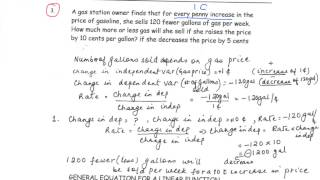 1¢
① A gas station owner finds that for every penny increase in the
price of gasoline, she sells 120 fewer gallons of gas per week.
How much more or less gas will she sell if she raises the price
by 10 cents per gallon? if she decreases the price by 5 cents
Number gallons sold depends on gas price
sold
change in independent var (gas price) = +1¢ + (increase of 1¢)
change in dependent var (# of gallons) = -120 gal (decrease)
Rate = change in dep / change in indep = -120 gal / +1¢ = -120 gal/¢
1. Change in dep = ?, change in indep = +10¢, Rate = -120 gal/¢
Rate = change in dep / change in indep ⇒ change in dep = Rate × change in indep
= -120 × 10
= -1200 gal
decrease
1200 fewer (less) gallons will
be sold per week for a 10¢ increase in price
GENERAL EQUATION FOR A LINEAR FUNCTION